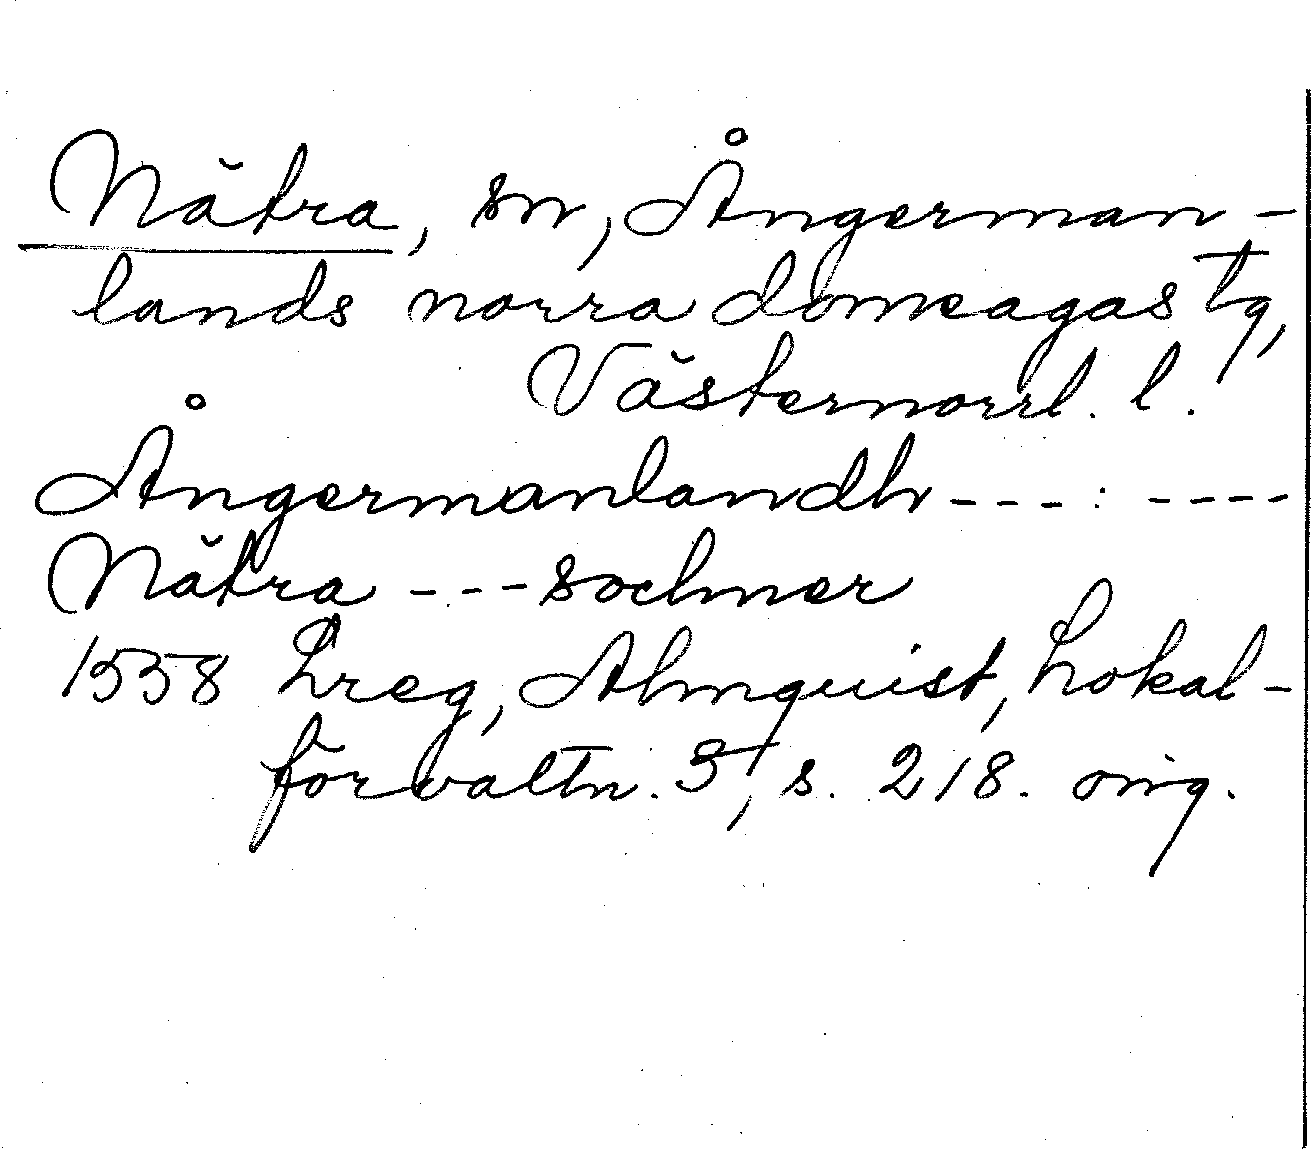 Nätra, sn, Ångerman-
lands norra domsagas tg,
Västernorrl. l.
Ångermanlandh --- : ----
Nätra --- sochner
1558 Lreg, Almquist, Lokal-
förvaltn. 3, s. 218. orig.